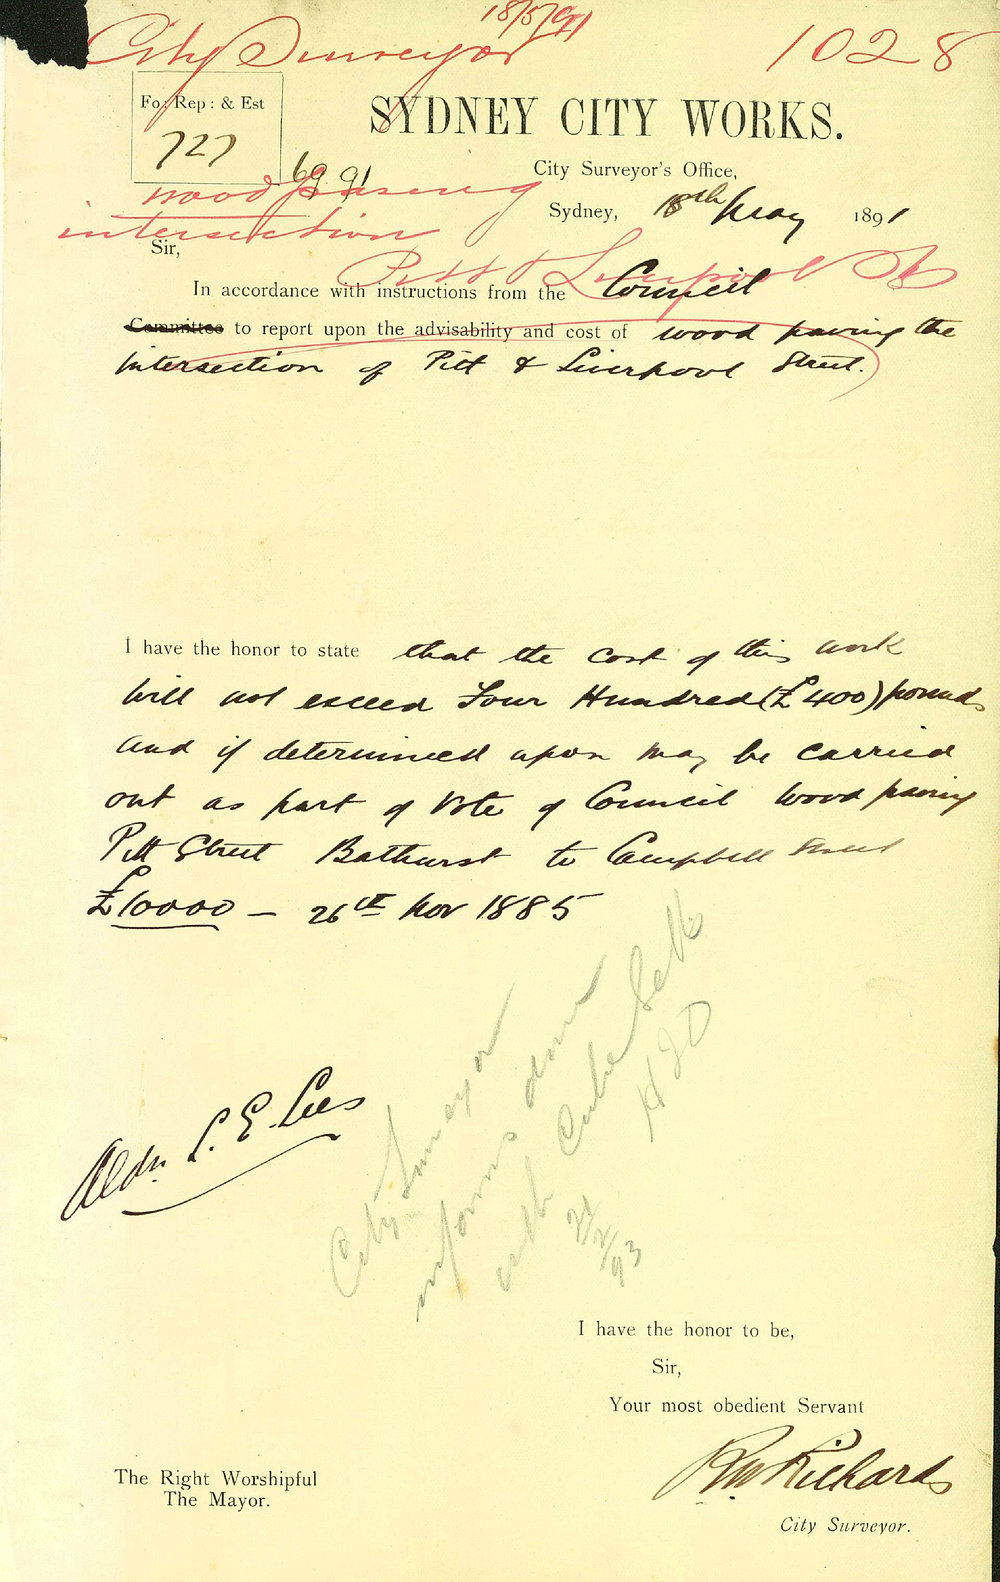 18/5/91
City Surveyor 1028
Fo: Rep: & Est
727
69 91
SYDNEY CITY WORKS.
City Surveyor's Office,
Sydney, 18th May 1891
wood paving
intersection
Pitt & Liverpool Sts
Sir,
In accordance with instructions from the Council
Committee to report upon the advisability and cost of wood paving the
intersection of Pitt & Liverpool Street.
I have the honor to state that the cost of this work
will not exceed Four Hundred (£400) pounds
and if determined upon may be carried
out as part of Vote of Council Wood paving
Pitt Street Bathurst to Campbell Street
£10000 — 26th Nov 1885
Aldn. L. E. Lees
City Surveyor
informs done
with Cube
21/2/93
I have the honor to be,
Sir,
Your most obedient Servant
RW Richards
City Surveyor.
The Right Worshipful
The Mayor.